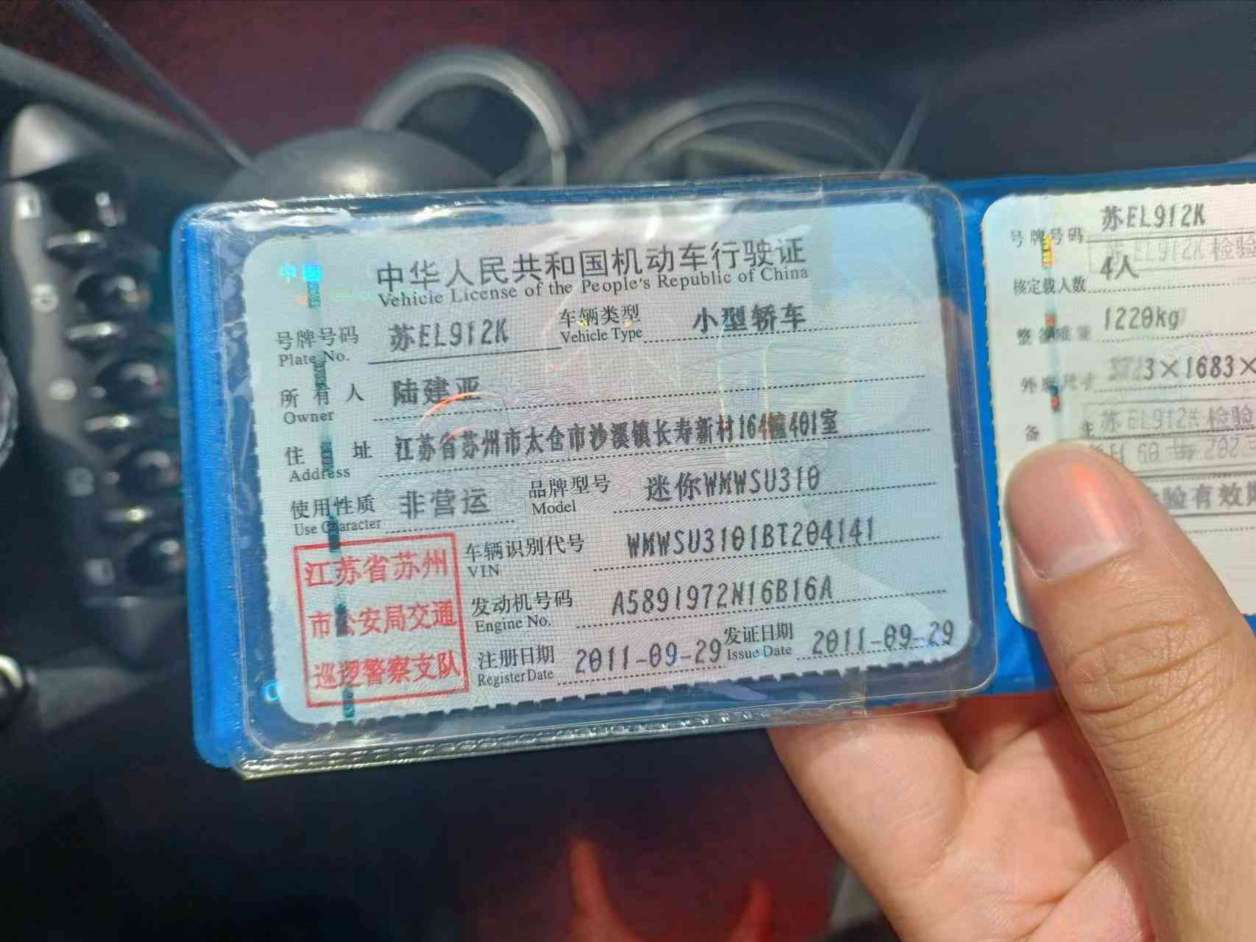 中华人民共和国机动车行驶证
Vehicle License of the People's Republic of China
号牌号码 苏EL912K 车辆类型 小型轿车
Plate No. Vehicle Type
所有人 陆建亚
Owner
住址 江苏省苏州市太仓市沙溪镇长寿新村164幢401室
Address
使用性质 非营运 品牌型号 迷你WMWSU310
Use Character Model
车辆识别代号 WMWSU3101BT204141
VIN
发动机号码 A5891972N16B16A
Engine No.
注册日期 2011-09-29 发证日期 2011-09-29
Register Date Issue Date
江苏省苏州
市公安局交通
巡逻警察支队
号牌号码 苏EL912K
苏EL912K 检验
核定载人数 4人
整备质量 1220kg
外廓尺寸 ×1683×
备注 苏EL912K 检验
验有效期